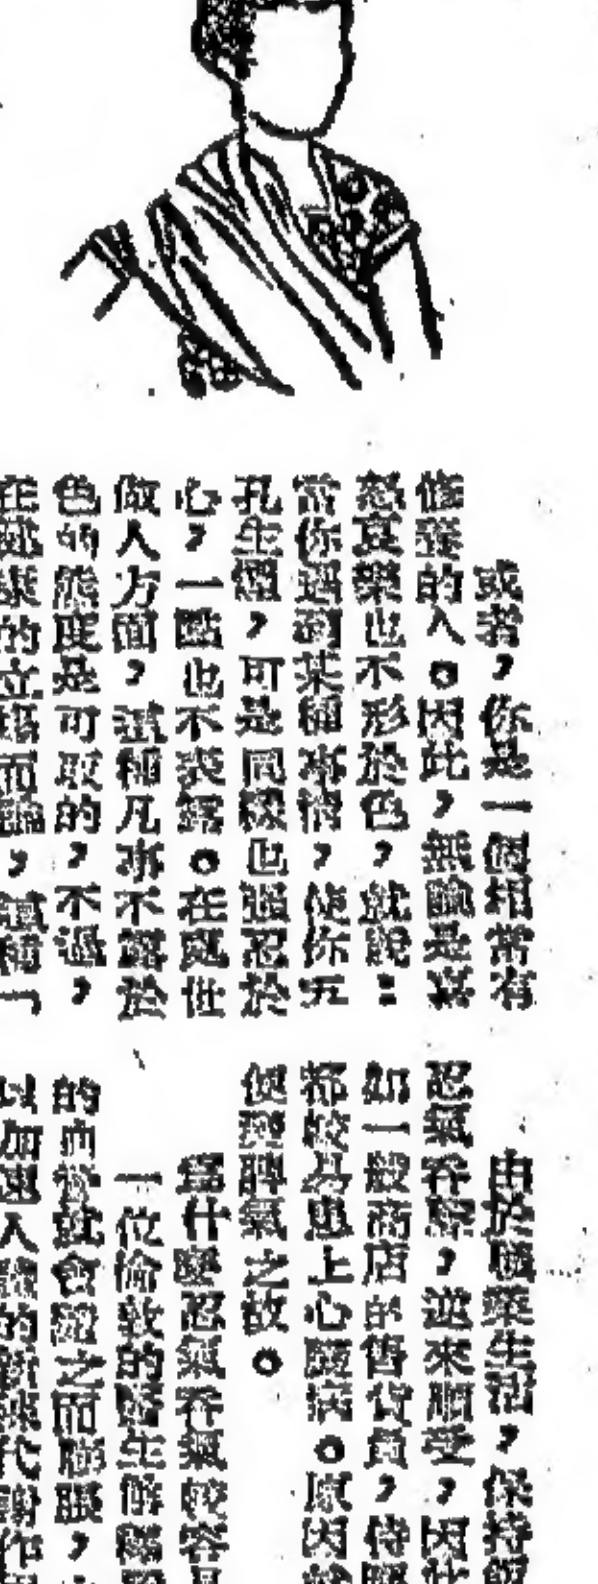 或者，你是一個相當有
修養的人。因此，無論是喜
怒哀樂也不形於色，就說：
當你遇到某種事情，使你五
孔生煙，可是同樣也強忍於
心，一點也不表露。在處世
做人方面，這種凡事不露於
色的態度是可取的，不過，
在健康的立場而論，這種「
由於職業生活，保持
忍氣吞聲，逆來順受，因此
如一般商店的售貨員，侍
都較為患上心臟病。原因
便與脾氣之故。
為什麼忍氣吞氣較容易
一位倫敦的醫生解釋
的血管就會隨之而膨脹，
以加速人體的新陳代謝作用